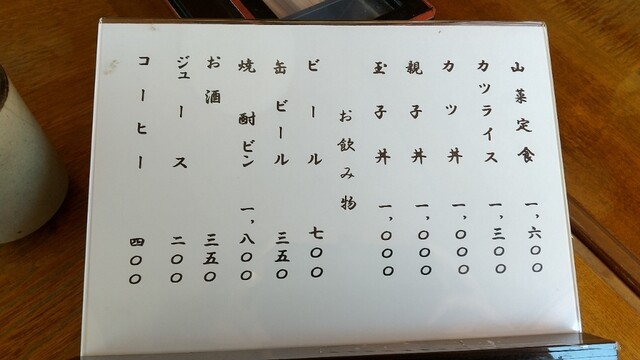 山菜定食 一、六〇〇
カツライス 一、三〇〇
カツ丼 一、〇〇〇
親子丼 一、〇〇〇
玉子丼 一、〇〇〇
お飲み物
ビール 七〇〇
缶ビール 三五〇
焼酎ビン 一、八〇〇
お酒 三五〇
ジュース 二〇〇
コーヒー 四〇〇